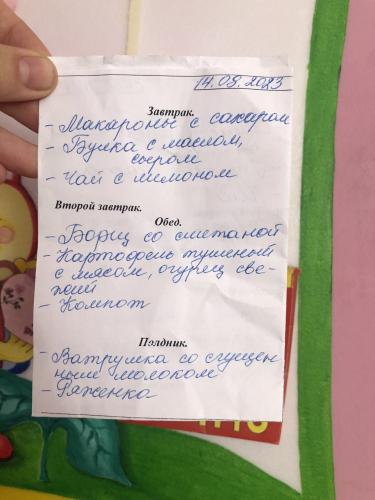 14.09.2023
Завтрак.
- Макароны с сахаром
- Булка с маслом,
сыром
- Чай с лимоном
Второй завтрак.
Обед.
- Борщ со сметаной
- Картофель тушеный
с мясом, огурец све-
жий
- Компот
Полдник.
- Ватрушка со сгущен
ным молоком
- Ряженка